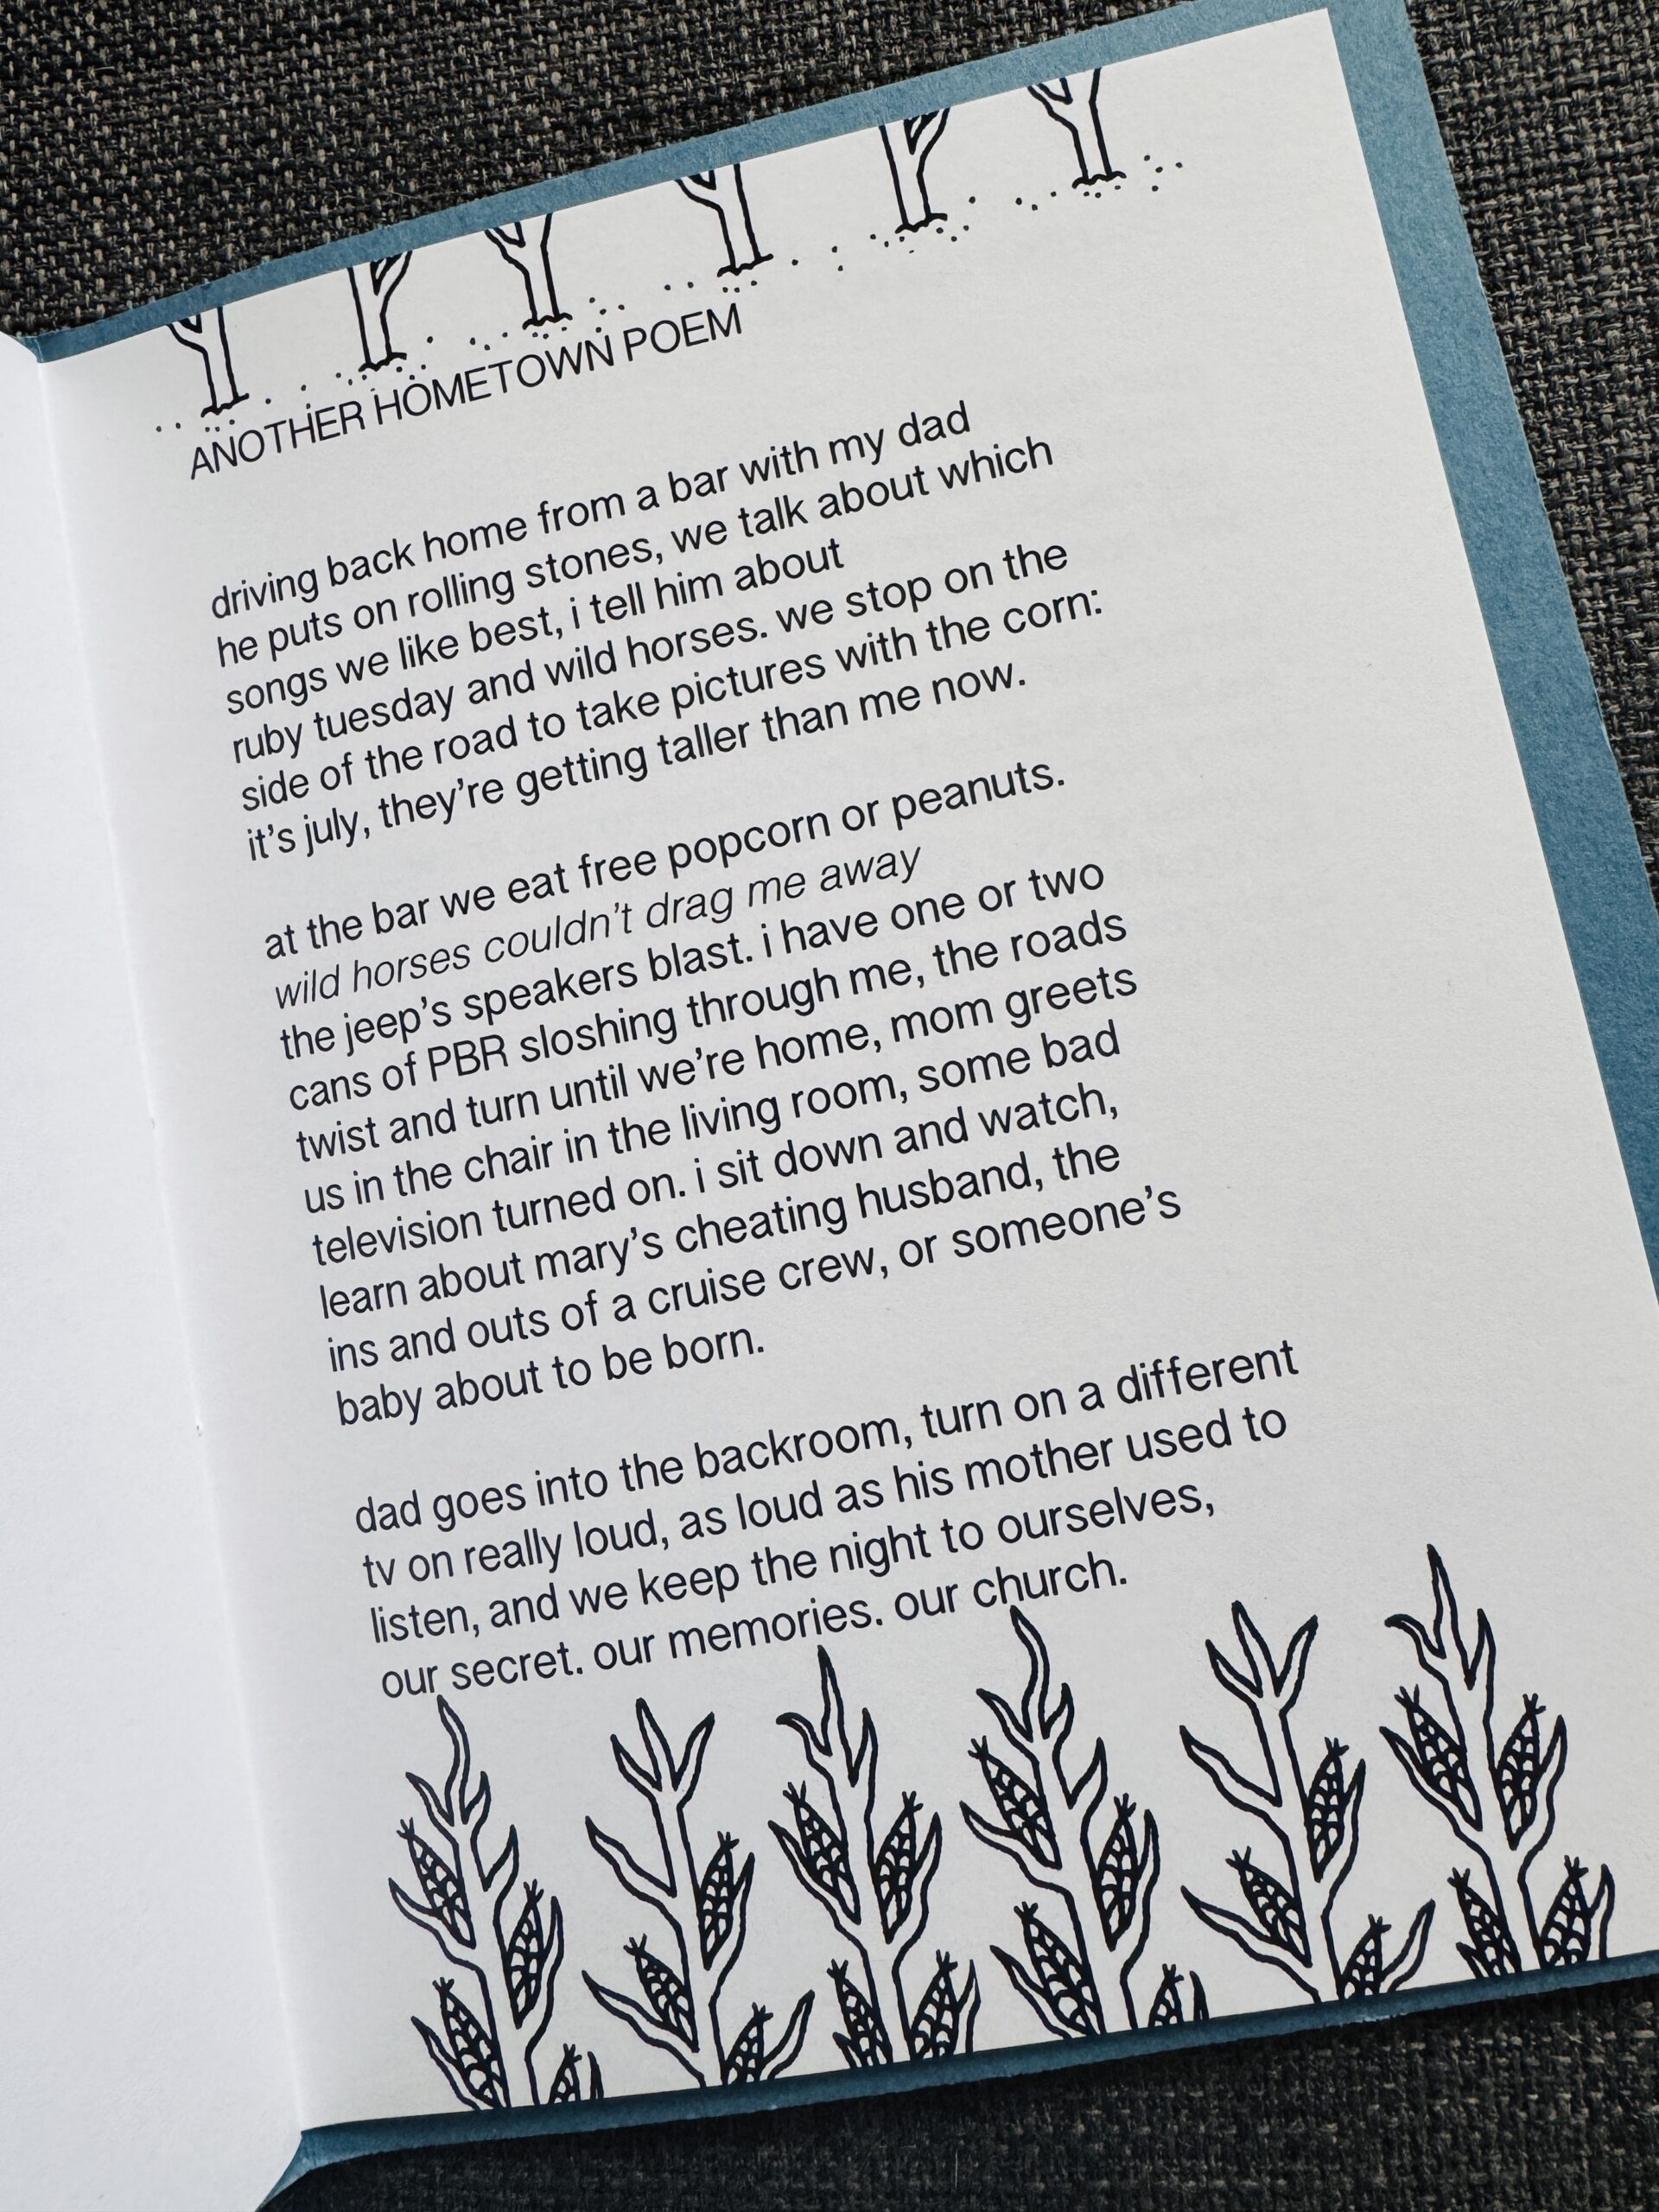 ANOTHER HOMETOWN POEM
driving back home from a bar with my dad
he puts on rolling stones, we talk about which
songs we like best, i tell him about
ruby tuesday and wild horses. we stop on the
side of the road to take pictures with the corn:
it's july, they're getting taller than me now.
at the bar we eat free popcorn or peanuts.
wild horses couldn't drag me away
the jeep's speakers blast. i have one or two
cans of PBR sloshing through me, the roads
twist and turn until we're home, mom greets
us in the chair in the living room, some bad
television turned on. i sit down and watch,
learn about mary's cheating husband, the
ins and outs of a cruise crew, or someone's
baby about to be born.
dad goes into the backroom, turn on a different
tv on really loud, as loud as his mother used to
listen, and we keep the night to ourselves,
our secret. our memories. our church.